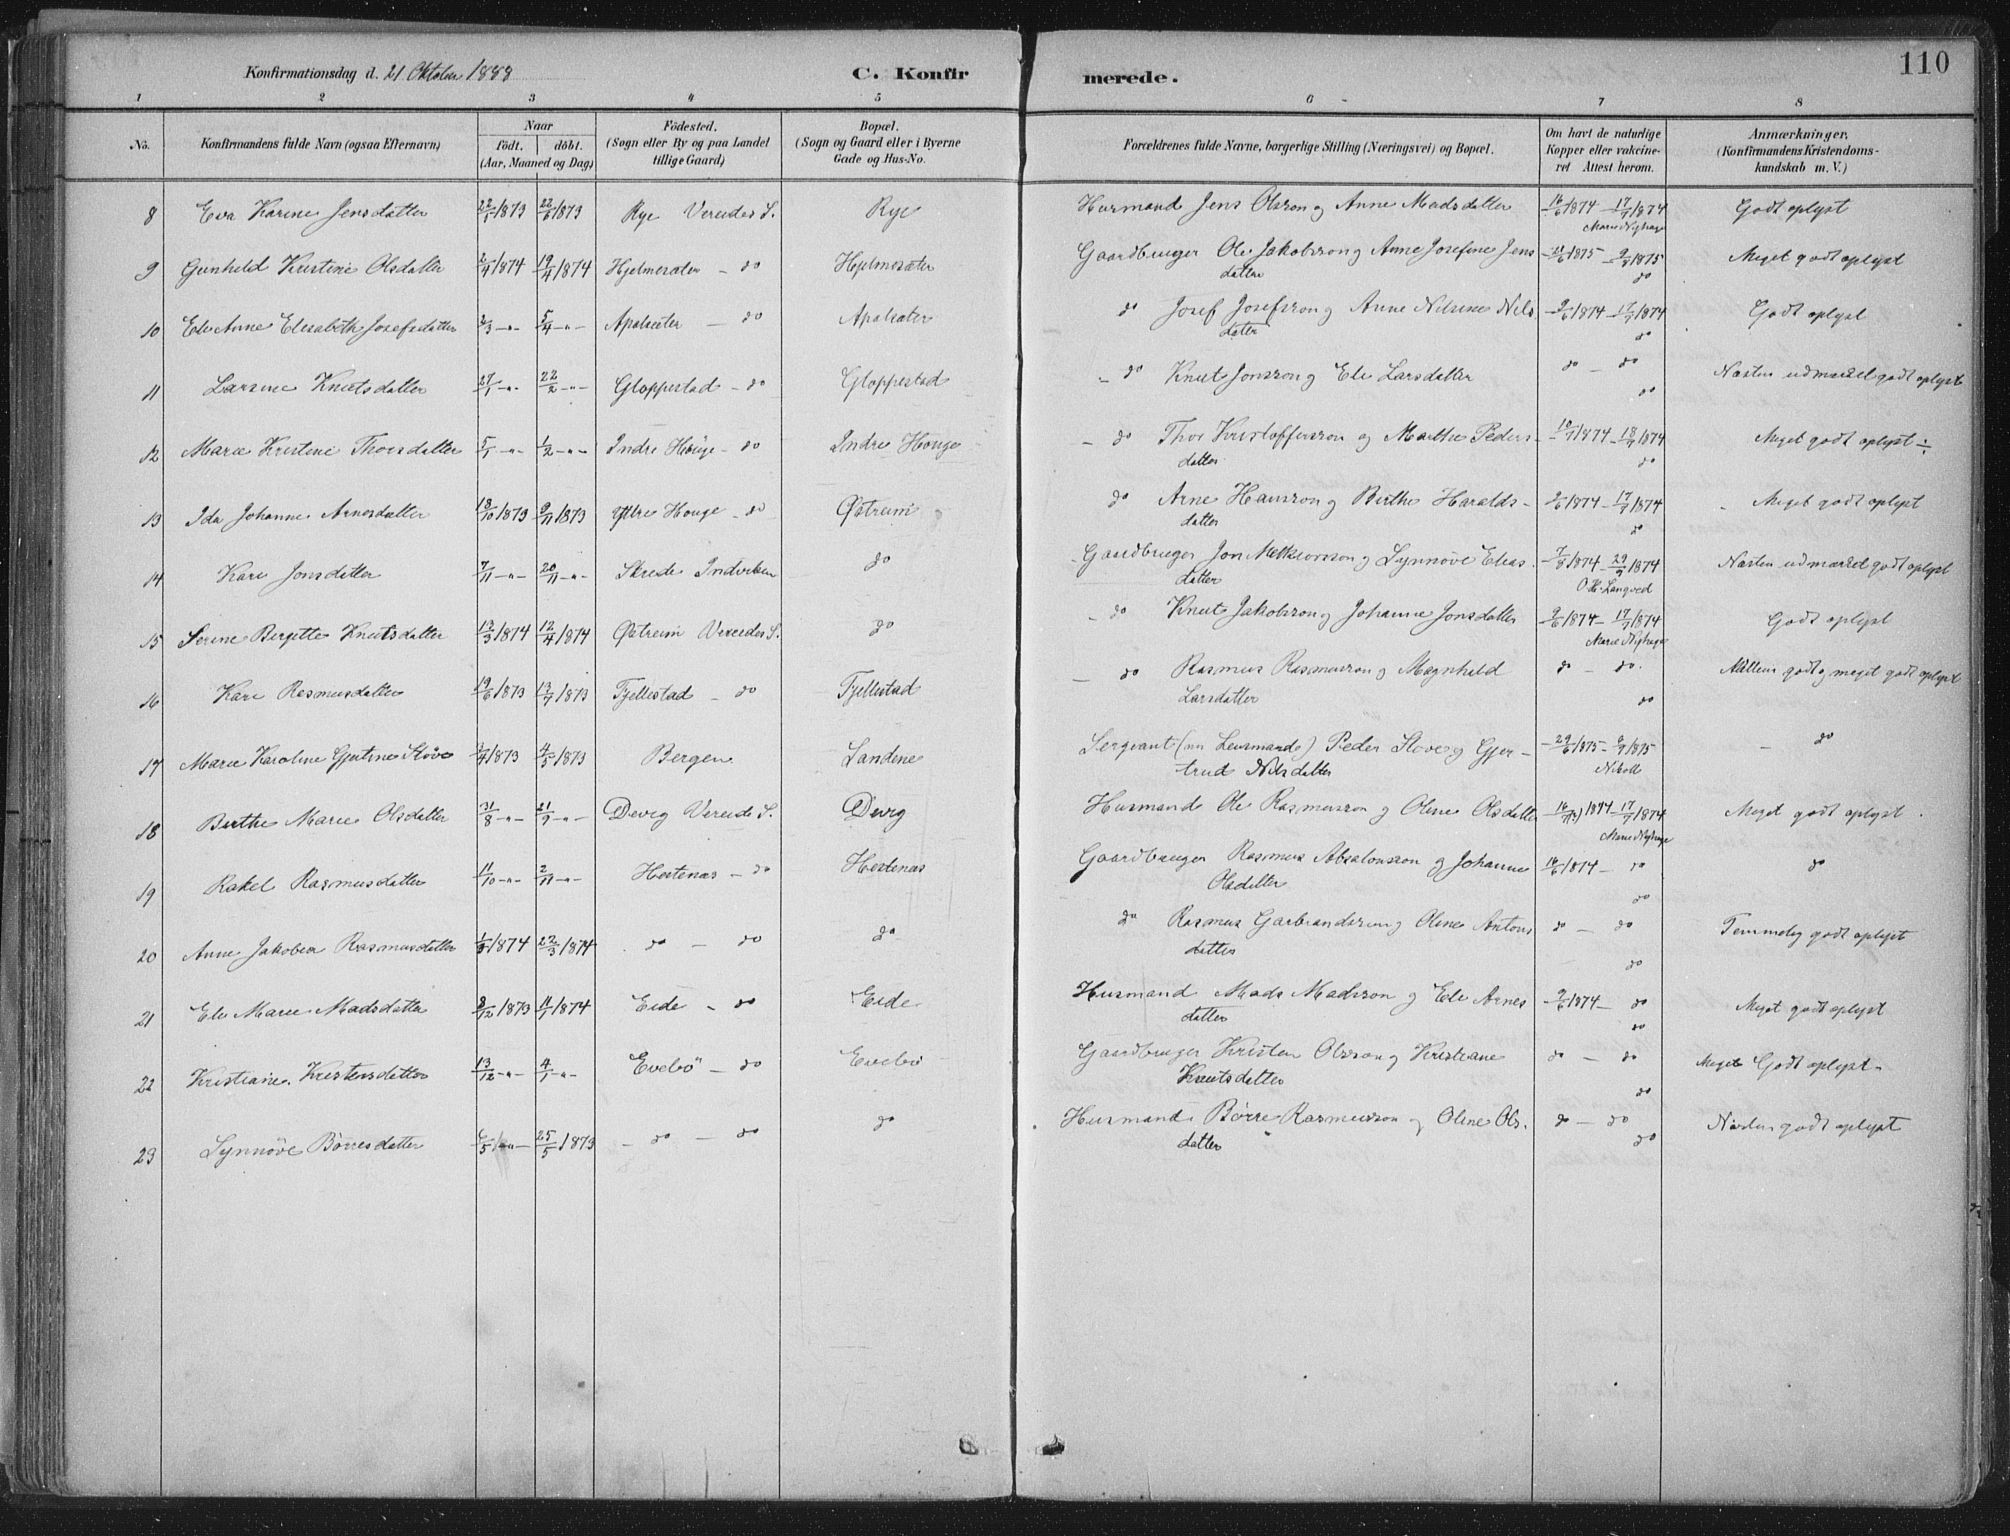 110
Konfirmationsdag d. 21 Oktober 1888
C. Konfirmerede.
1 2 3 4 5 6 7 8
No. Konfirmandens fulde Navn (ogsaa Efternavn) Naar födt. döbt. (Aar, Maaned og Dag) Födested. (Sogn eller By og paa Landet tillige Gaard) Bopæl. (Sogn og Gaard eller i Byerne Gade og Hus-No. Forældrenes fulde Navne, borgerlige Stilling (Næringsvei) og Bopæl. Om havt de naturlige Kopper eller vakcineret Attest herom. Anmærkninger. (Konfirmandens Kristendomskundskab m. V.)
8 Eva Karine Jensdatter 22/5 1873 22/6 1873 Rye Vereides S. Rye Husmand Jens Olsson og Anne Madsdatter 16/6 1874 - 17/7 1874 Godt oplyst
Marie Nyhage
9 Gunhild Kristine Olsdatter 2/4 1874 19/4 1874 Hjelmesæter - do Hjelmesæter Gaardbruger Ole Jakobsson og Anne Josefine Jens 11/6 1875 - 9/8 1875 Meget godt oplyst
datter do
10 Eli Anne Elisabeth Josefsdatter 2/3 -"- 5/4 -"- Apalsæter - do Apalsæter do Josef Josefsson og Anne Nilsine Nils 9/6 1874 - 17/7 1874 Godt oplyst
datter do
11 Larsine Knutsdatter 27/1 -"- 22/2 -"- Gloppestad - do Gloppestad - do Knut Jonsson og Eli Larsdatter do - do Næsten udmærket godt oplyst
do
12 Marie Kristine Thorsdatter 5/1 -"- 1/2 -"- Indre Houge - do Indre Houge - do Thor Kristoffersson og Marthe Peders 10/7 1874 - 18/7 1874 Meget godt oplyst ÷
datter do
13 Ida Johanne Arnesdatter 18/10 1873 9/11 1873 Yttre Houge - do Østreim do Arne Hansson og Birthe Haralds- 9/6 1874 - 17/7 1874 Meget godt oplyst
datter do
14 Kari Jonsdatter 7/11 -"- 20/11 -"- Skrede Indviken do Gaardbruger Jon Mekkiorsson og Synnöve Elias 7/8 1874 - 29/9 1874 Næsten udmærket godt oplyst
datter O. K. Langved
15 Serine Birgitte Knutsdatter 13/3 1874 12/4 1874 Østreim Vereides S. do - do Knut Jakobsson og Johanne Jonsdatter 9/6 1874 - 17/7 1874 Godt oplyst
Marie Nyhage
16 Kari Rasmusdatter 19/6 1873 13/7 1873 Fjellestad - do Fjellestad - do Rasmus Rasmusson og Magnhild do - do Mellem godt og meget godt oplyst
Larsdatter do
17 Marie Karoline Gjertine Stöve 3/4 1873 4/5 1873 Bergen Sandene Sergeant (nu Lensmand) Peder Stove og Gjer- 29/6 1875 - 6/7 1875 - do
trud Nilsdatter
18 Birthe Marie Olsdatter 31/8 -"- 21/9 -"- Devig Vereide S. Devig Husmand Ole Rasmusson og Oline Olsdatter 1874 - 17/7 1874 Meget godt oplyst
Marie Nyhage
19 Rakel Rasmusdatter 11/10 -"- 2/11 -"- Hestenæs - do Hestenæs Gaardbruger Rasmus Absalonsson og Johanne 16/6 1874 - do do
Olsdatter do
20 Anne Jakobea Rasmusdatter 1/3 1874 22/3 1874 do - do do do Rasmus Garbrandsson og Oline Antons do - do Temmelig godt oplyst
datter do
21 Eli Marie Madsdatter 8/12 1873 11/1 1874 Eide - do Eide Husmand Mads Madsson og Eli Arnes 9/6 1874 - do Meget godt oplyst
datter do
22 Kristiane Kristensdatter 13/12 -"- 4/1 -"- Evebö - do Evebö Gaardbruger Kristen Olsson og Kristiane do - do Meget Godt oplyst
Knutsdatter do
23 Synnöve Börresdatter 6/5 -"- 25/5 1873 - do - do do Husmand Börre Rasmusson og Oline Ols. do - do Næsten godt oplyst
datter do